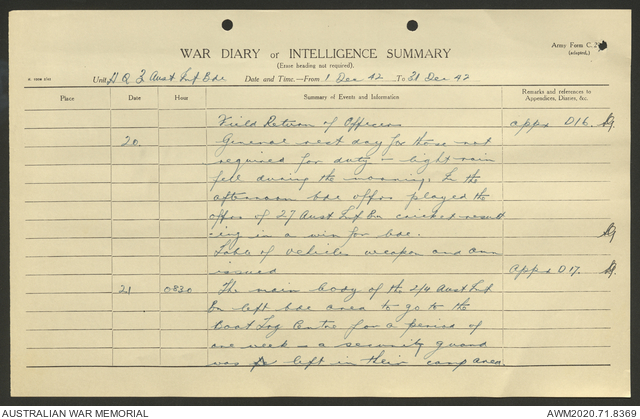 Army Form C.
(adapted.)
WAR DIARY or INTELLIGENCE SUMMARY
(Erase heading not required).
Unit H Q 3 Aust Inf Bde Date and Time.—From 1 Dec 42 To 31 Dec 42
Place Date Hour Summary of Events and Information Remarks and references to Appendices, Diaries, &c.
Field Return of Officers appx D16.
20. General rest day for those not
required for duty - light rain
fell during the morning. In the
afternoon bde offrs played the
offrs of 27 Aust Inf Bn cricket result
ing in a win for bde.
Table of vehicles weapon and amn
issued appx D17.
21 0830 The main body of the 2/4 Aust Inf
Bn left bde area to go to the
Boat Trg Centre for a period of
one week - a security guard
was left in their camp area.
AUSTRALIAN WAR MEMORIAL AWM2020.71.8369